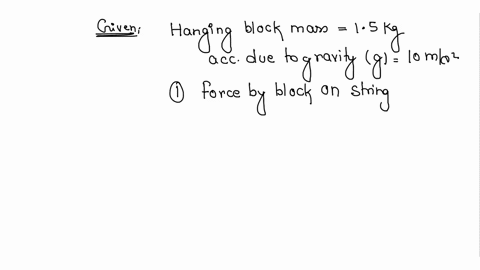 Given: Hanging block mass = 1.5 kg
acc. due to gravity (g) = 10 m/s²
① force by block on string